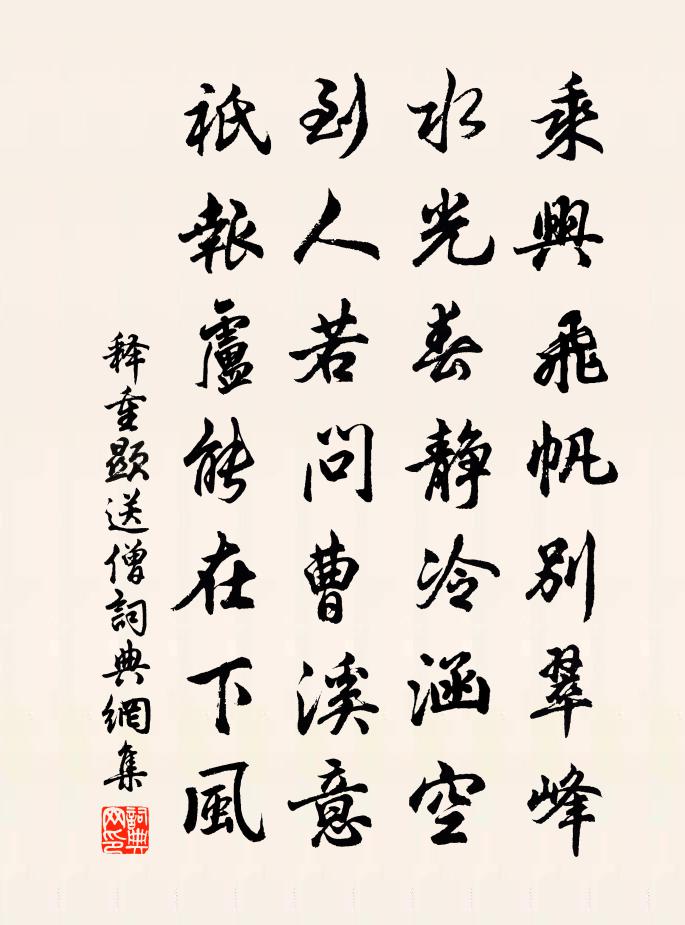 乘興飛帆別翠峰
水光春靜冷涵空
到人若問曹溪意
祇報盧能在下風
释重顯送僧詞典網集
詞典网印